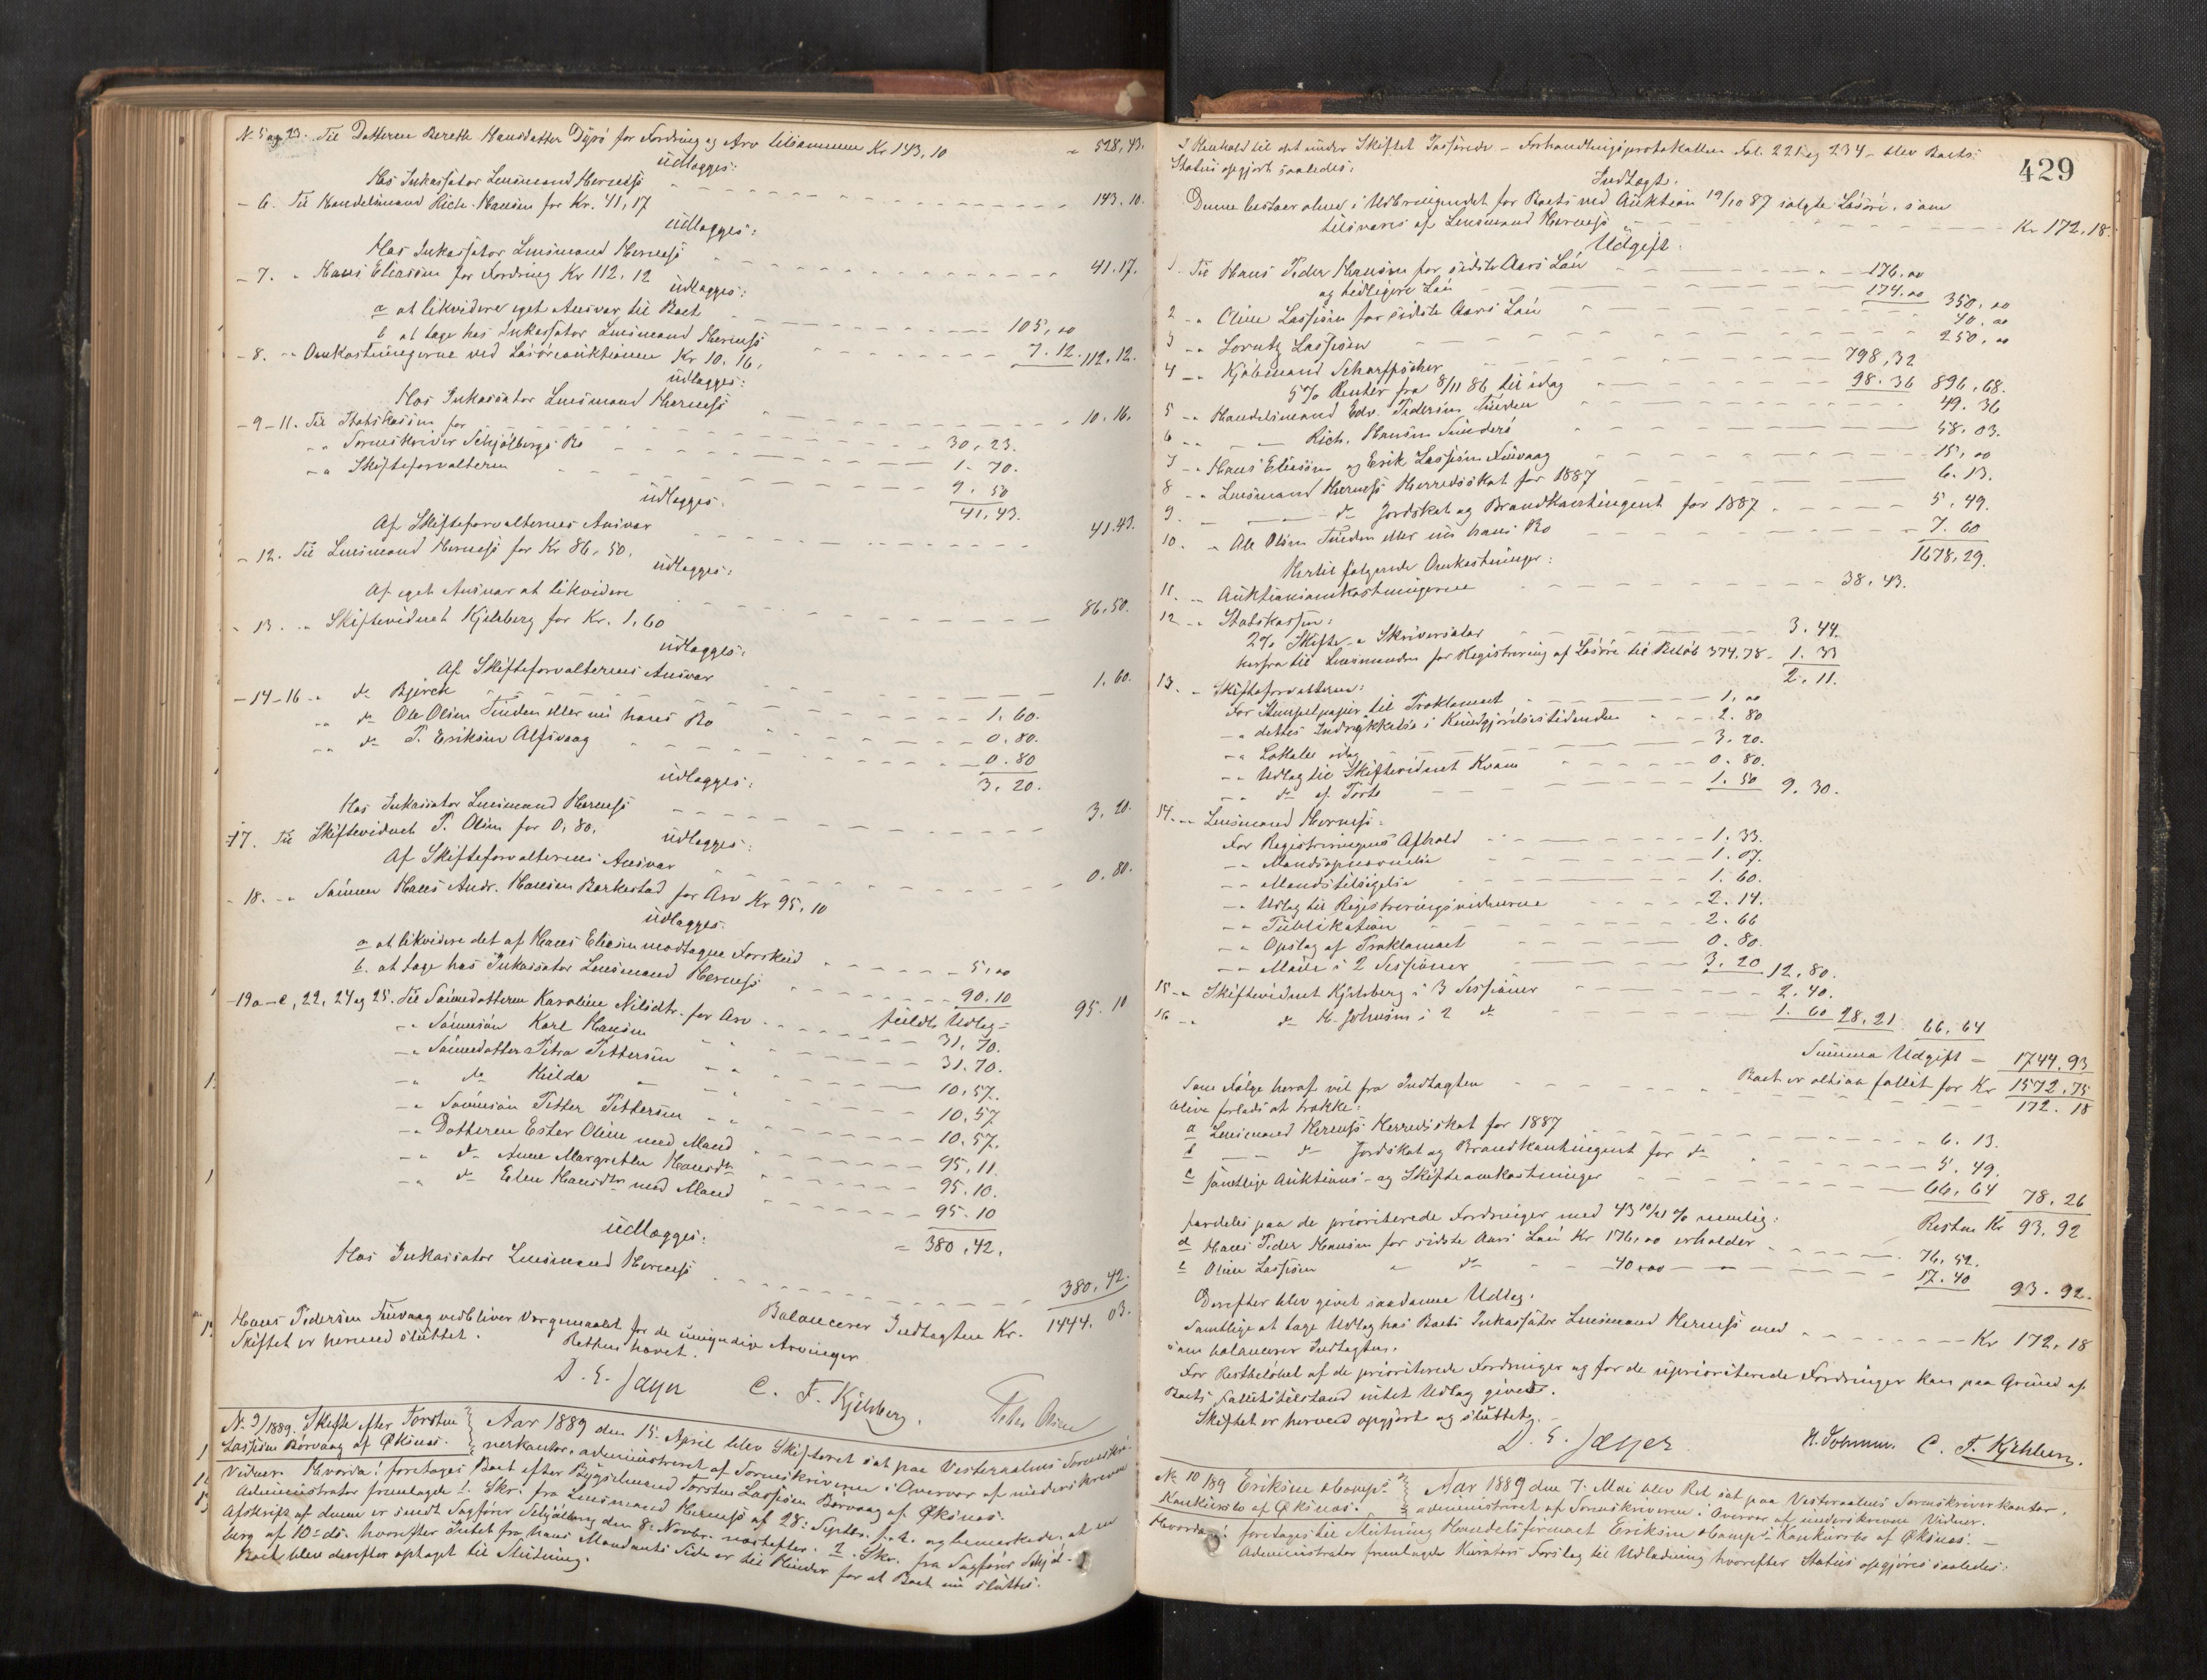 N. 5 og 23. Til Datteren Bereth Hansdatter Dyrö for Fordring og Arv tilsammen Kr 143,10 " 528,43.
udlægges:
Hos Inkassator Lensmand Hernes 143.10.
- 6. Til Handelsmand Rich. Hansen for Kr. 41,17
udlægges:
Hos Inkassator Lensmand Hernes 41.17.
- 7. " Hans Eliassen for Fordring Kr 112,12
udlægges:
a at likvidere eget Ansvar til Boet 105,00
b at tage hos Inkassator Lensmand Hernes 7.12. 112,12.
- 8. " Omkostningerne ved Løsøreauktionen Kr 10.16,
udlægges:
Hos Inkassator Lensmand Hernes 10.16.
- 9-11. Til Statskassen for 30,23.
" Sorenskriver Schjølbergs Bo 1.70.
" Skifteforvalteren 9.50
41,43.
udlægges.
Af Skifteforvalternes Ansvar 41.43.
- 12. Til Lensmand Hernes for Kr 86,50.
udlægges:
Af eget Ansvar at likvidere 86,50.
- 13. " Skiftevidnet Kjelsberg for Kr. 1,60
udlægges:
Af Skifteforvalterens Ansvar 1.60.
- 14-16 " do Bjerck 1,60.
" do Ole Olsen Tinden eller nu hans Bo 0.80.
" do P. Eriksen Alfsvaag 0.80
3,20.
udlægges:
Hos Inkassator Lensmand Hernes 3,20.
- 17. Til Skiftevidnet P. Olsen for 0,80.
udlægges:
Af Skifteforvalterens Ansvar 0.80.
- 18. " Sønnen Hans Andr. Hansen Barkestad for Arv Kr 95,10
udlægges.
a at likvidere det af Hans Eliassen modtagne Forskud 5,00
b. at tage hos Inkassator Lensmand Hernes 90.10 95.10
fuldt Udlæg
- 19a-e, 22, 24 og 25. Til Sønnedatteren Karoline Nilsdtr. for Arv 31,70.
" Sønnesøn Karl Hansen 31.70.
" Sønnedatter Petra Pettersen 10,57.
" do Hilda " 10,57
" Sønnesøn Petter Pettersen 10,57.
" Datteren Ester Oline med Mand 95,11.
" do Anne Margrethe Hansdtr 95.10.
" do Elen Hansdtr med Mand 95.10
= 380,42.
udlægges:
Hos Inkassator Lensmand Hernes 380,42.
Balancerer Indtægten Kr. 1444.03.
Hans Pedersen Tinvaag vedbliver Værgemaalet for de umyndige Arvinger
Skiftet er hermed sluttet.
Retten hævet.
D. E. Jæger C. F. Kjelsberg. Peder Olsen
N. 9/1889. Skifte efter Torsten Lassesen Børvaag af Øksnes.
Aar 1889 den 15. April blev Skifteret sat paa Vesteraalens Sorenskriverkontor, administreret af Sorenskriveren i Overvær af underskrevne
Vidner. Hvorda! foretages Boet efter Bygselmand Torsten Lassesen Børvaag af Øksnes.
Administrator fremlagde 1. Skr. fra Lensmand Hernes af 28: Septbr. f. A. og bemærkede, at en
Afskrift af denne er sendt Sagfører Schjølberg den 8: Novbr. næstefter. 2. Skr. fra Sagfører Schjøl-
berg af 10de ds. hvorefter Intet fra hans Mandants Side er til Hinder for at Boet nu sluttes.
Boet blev derefter optaget til Slutning.
429
I Henhold til det under Skiftet Passerede – Forhandlingsprotokollen Fol. 221 og 234 – blev Boets
Status opgjort saaledes:
Indtægt.
Denne bestaar alene i Udbringendet for Boets ved Auktion 19/10 87 solgte Løsøre, som
tilsvares af Lensmand Hernes Kr 172,18.
Udgift.
1. Til Hans Peder Hansen for sidste Aars Løn 176.00
og tidligere Løn 174.00 350.00
2 " Oline Lassesen for sidste Aars Løn 40.00
3 " Lorntz Lassesen 250.00
4 " Kjøbmand Scharffscher 798,32
5% Renter fra 8/11 86 til idag 98.36 896,68.
5 " Handelsmand Edv. Pedersen Tinden 49.36
6 " — Rich. Hansen Sunderö 58.03.
7 " Hans Eliassen og Erik Lassesen Tinvaag 15,00
8 " Lensmand Hernes Herredsskat for 1887 6.13.
9. — do Jordskat og Brandkontingent for 1887 5,49.
10. " Ole Olsen Tinden eller nu hans Bo 7.60
1678,29.
Hertil følgende Omkostninger:
11. " Auktionsomkostningerne 38.43.
12 " Statskassen:
2% Skifte- & Skriversalær 3.44.
herfra til Lensmanden for Registrering af Løsøre til Beløb 374,78 1.33
2.11.
13. " Skifteforvalteren:
For Stempelpapir til Proklamaet 1,00
" dettes Indrykkelse i Kundgjørelsestidende 2.80
" Lokale idag 3.20.
" Udlæg til Skiftevidnet Kvam 0.80.
" do af Porto 1.50 9.30.
14. " Lensmand Hernes:
For Registreringens Afhold 1.33.
" Mandsopnævnelse 1.07.
" Mandstilsigelse 1.60.
" Udlæg til Registreringsvidnerne 2.14.
" Publikation 2.66
" Opslag af Proklamaet 0.80.
" Møde i 2 Sessioner 3.20 12,80.
15 " Skiftevidnet Kjelsberg i 3 Sessioner 2.40.
16 " do H. Johnsen i 2 do 1.60 28,21 66,64
Summa Udgift = 1744,93
Boet er altsaa fallit for Kr 1572,75
Som Følge heraf vil fra Indtægten 172.18
blive forlods at trække:
a Lensmand Hernes Herredsskat for 1887 6.13.
b — do Jordskat og Brandkontingent for do 5.49.
c samtlige Auktions- og Skifteomkostninger 66,64 78.26
Resten Kr 93,92
fordeles paa de prioriterede Fordringer med 43 10/21 % nemlig:
d Hans Peder Hansen for sidste Aars Løn Kr 176,00 erholder 76,52.
e Oline Lassesen " do - 40,00 17.40 93.92.
Derefter blev givet saadanne Udlæg.
Samtlige at tage Udlæg hos Boets Inkassator Lensmand Hernes med Kr 172,18
som balancerer Indtægten.
For Restbeløbet af de prioriterede Fordringer og for de uprioriterede Fordringer kan paa Grund af
Boets Fallittilstand intet Udlæg gives.
Skiftet er herved opgjort og sluttet.
D. E. Jæger H. Johnsen. C. F. Kjelsberg.
No 10/89 Eriksen & Comps Konkursbo af Øksnes.
Aar 1889 den 7. Mai blev Ret sat paa Vesteraalens Sorenskriverkontor,
administreret af Sorenskriveren i Overvær af underskrevne Vidner.
Hvorda! foretages til Slutning Handelsfirmaet Eriksen & Comps Konkursbo af Øksnes. —
Administrator fremlagde Kurators Forslag til Udlodning hvorefter Status opgjøres saaledes: